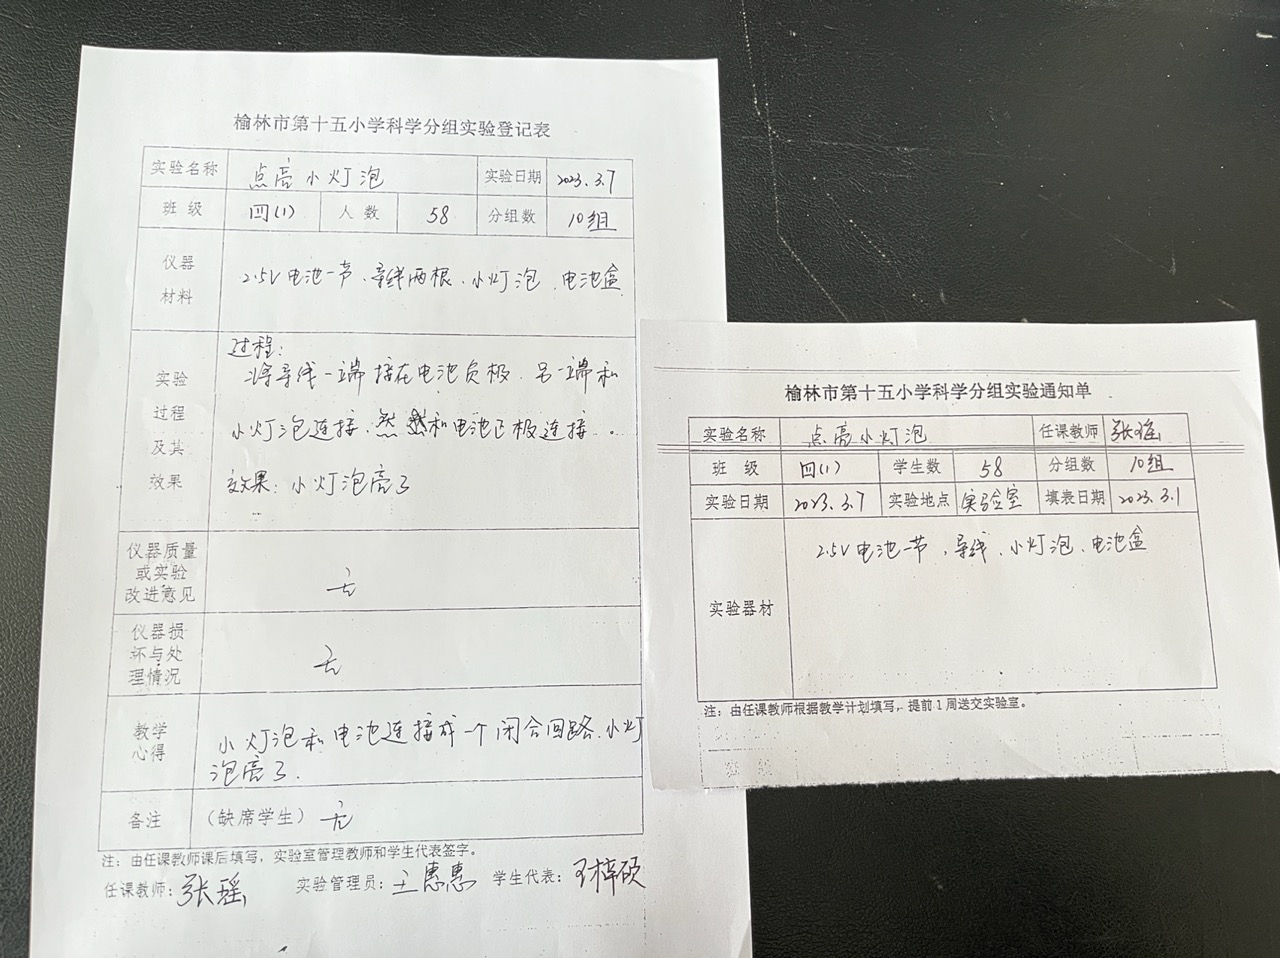 榆林市第十五小学科学分组实验登记表
实验名称 点亮小灯泡 实验日期 2023.3.7
班级 四(1) 人数 58 分组数 10组
仪器
材料
2.5V电池一节、导线两根、小灯泡、电池盒
实验
过程
及其
效果
过程:
将导线一端接在电池负极.另一端和
小灯泡连接.然后和电池正极连接.
效果:小灯泡亮了
仪器质量
或实验
改进意见
无
仪器损
坏与处
理情况
无
教学
心得
小灯泡和电池连接成一个闭合回路.小灯
泡亮了.
备注 (缺席学生) 无
注:由任课教师课后填写,实验室管理教师和学生代表签字。
任课教师:张瑶 实验管理员:王惠惠 学生代表:王梓硕
榆林市第十五小学科学分组实验通知单
实验名称 点亮小灯泡 任课教师 张瑶
班级 四(1) 学生数 58 分组数 10组
实验日期 2023.3.7 实验地点 实验室 填表日期 2023.3.1
实验器材
2.5V电池一节、导线、小灯泡、电池盒
注:由任课教师根据教学计划填写,提前1周送交实验室。